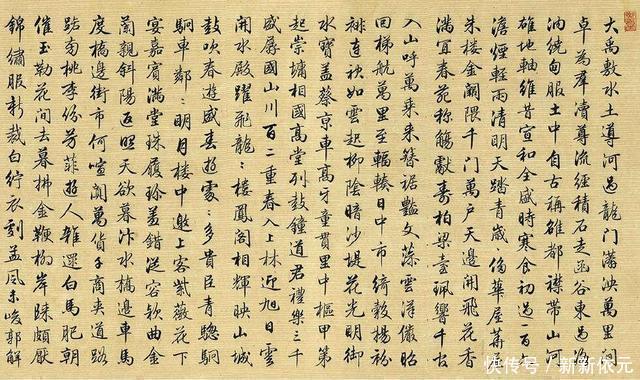 大禹敷水土導河過龍門瀰泱萬里間
卓為羣瀆尊流經積石走函谷東過洛
汭統甸服土中自古稱雄都襟帶山河
雄地軸維昔宣和全盛時寒食初過一百
澹煙輕雨清明天踏青歲侈華屋
朱樓金闕隈千門萬戶天邊開飛花香
滿宜春苑稱觴獻壽柏梁臺珮響千官
入山呼萬乘来簪裾豔文藻雲洋儼昭
回梯航萬里至輻輳日中市綺縠揚
袂連衽如雲起柳陰暗沙堤花光明御
水寶蓋蔡京車高牙童貫里中樞甲第
起崇墉相國高堂列鼓鐘道君禮樂三千
盛國山川百二重春入上林近旭日雲
開水殿躍飛龍樓鳳閣相輝映山城
鼓吹春遊盛春遊處多貴臣青驄駉
駉車鄰明月樓中邀上客紫薇花下
宴嘉賓滿堂珠履珍羞錯從容軟曲金
蘭親斜陽返照天欲暮汴水橋邊車馬
度橋邊街市何喧闐萬貨千商夾道路
踏桃李份芳菲遊人雜遝白馬肥朝
催玉勒花間去暮拂金鞭柳岸頗厭
錦繡服新裁白紵衣劇孟風未峻郭解
快传号 / 新新依元